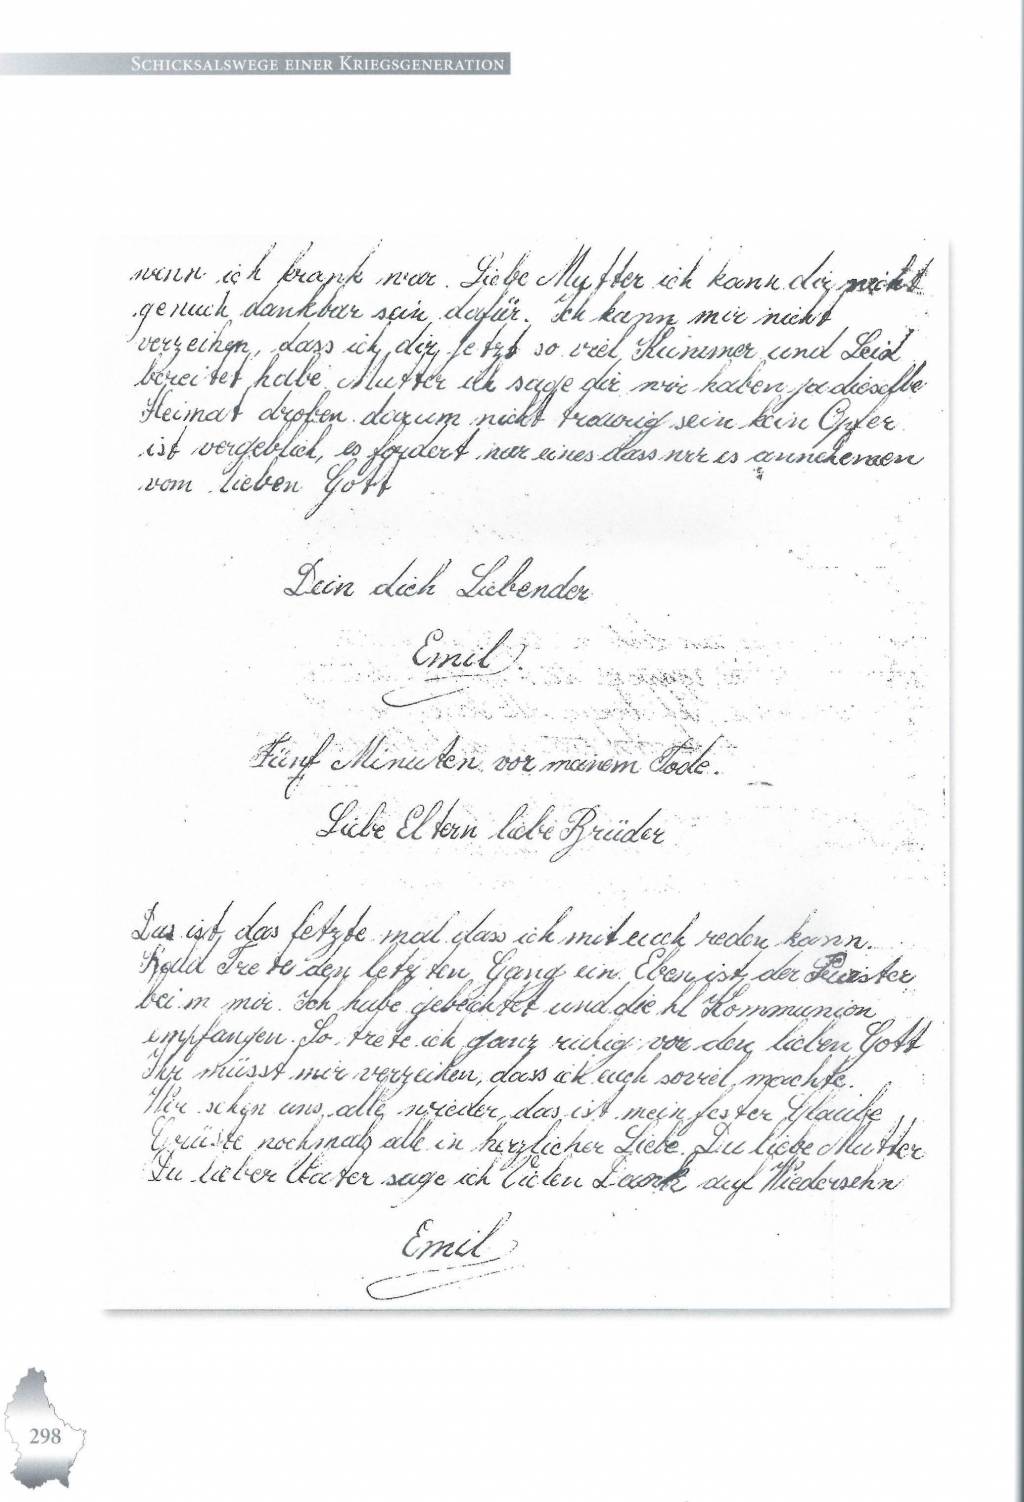 SCHICKSALSWEGE EINER KRIEGSGENERATION
wenn ich krank war. Liebe Mutter ich kann dir nicht
genuch dankbar sein dafür. Ich kann mir nicht
verzeihen, dass ich dir jetzt so viel Kummer und Leid
bereitet habe. Mutter ich sage dir wir haben ja dieselbe
Heimat droben darum nicht traurig sein kein Opfer
ist vergeblich, es fordert nur eines dass wir es annehemen
vom lieben Gott
Dein dich Liebender
Emil.
Fünf Minuten vor meinem Tode.
Liebe Eltern liebe Brüder
Das ist das letzte mal dass ich mit euch reden kann.
Bald Trete den letzten Gang ein. Eben ist der
bei m mir. Ich habe gebeichtet und die hl Kommunion
empfangen. So trete ich ganz ruhig vor den lieben Gott
Ihr müsst mir verzeihen, dass ich euch soviel machte.
Wir sehen uns alle wieder, das ist mein fester Glaube
Grüsse nochmals alle in herzlicher Liebe. Du liebe Mutter
Du lieber Vater sage ich Vielen Dank auf Wiedersehn
Emil
298